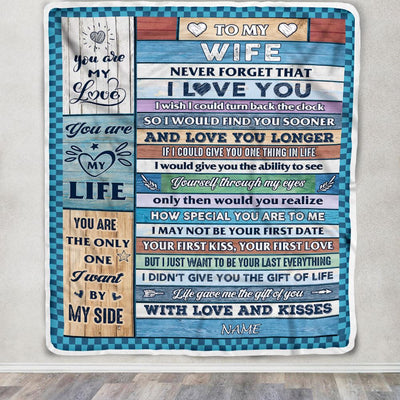 You are
MY
Love
You are
MY
LIFE
YOU ARE
THE ONLY
ONE
I want
BY
MY SIDE
TO MY
WIFE
NEVER FORGET THAT
I LOVE YOU
I WISH I COULD TURN BACK THE CLOCK
SO I WOULD FIND YOU SOONER
AND LOVE YOU LONGER
IF I COULD GIVE YOU ONE THING IN LIFE
I would give you the ability to see
Yourself through my eyes
only then would you realize
HOW SPECIAL YOU ARE TO ME
I MAY NOT BE YOUR FIRST DATE
YOUR FIRST KISS, YOUR FIRST LOVE
BUT I JUST WANT TO BE YOUR LAST EVERYTHING
I DIDN'T GIVE YOU THE GIFT OF LIFE
Life gave me the gift of you
WITH LOVE AND KISSES
NAME